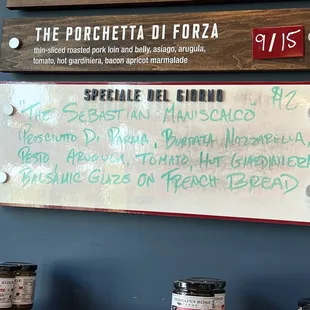 THE PORCHETTA DI FORZA
thin-sliced roasted pork loin and belly, asiago, arugula,
tomato, hot giardiniera, bacon apricot marmalade
9/15
SPECIALE DEL GIORNO
"THE SEBASTIAN MANISCALCO
PROSCIUTO DI PARMA, BURRATA MOZZARELLA,
PESTO ARUGULA, TOMATO, HOT GIARDINIERA
BALSAMIC GLAZE ON FRENCH BREAD